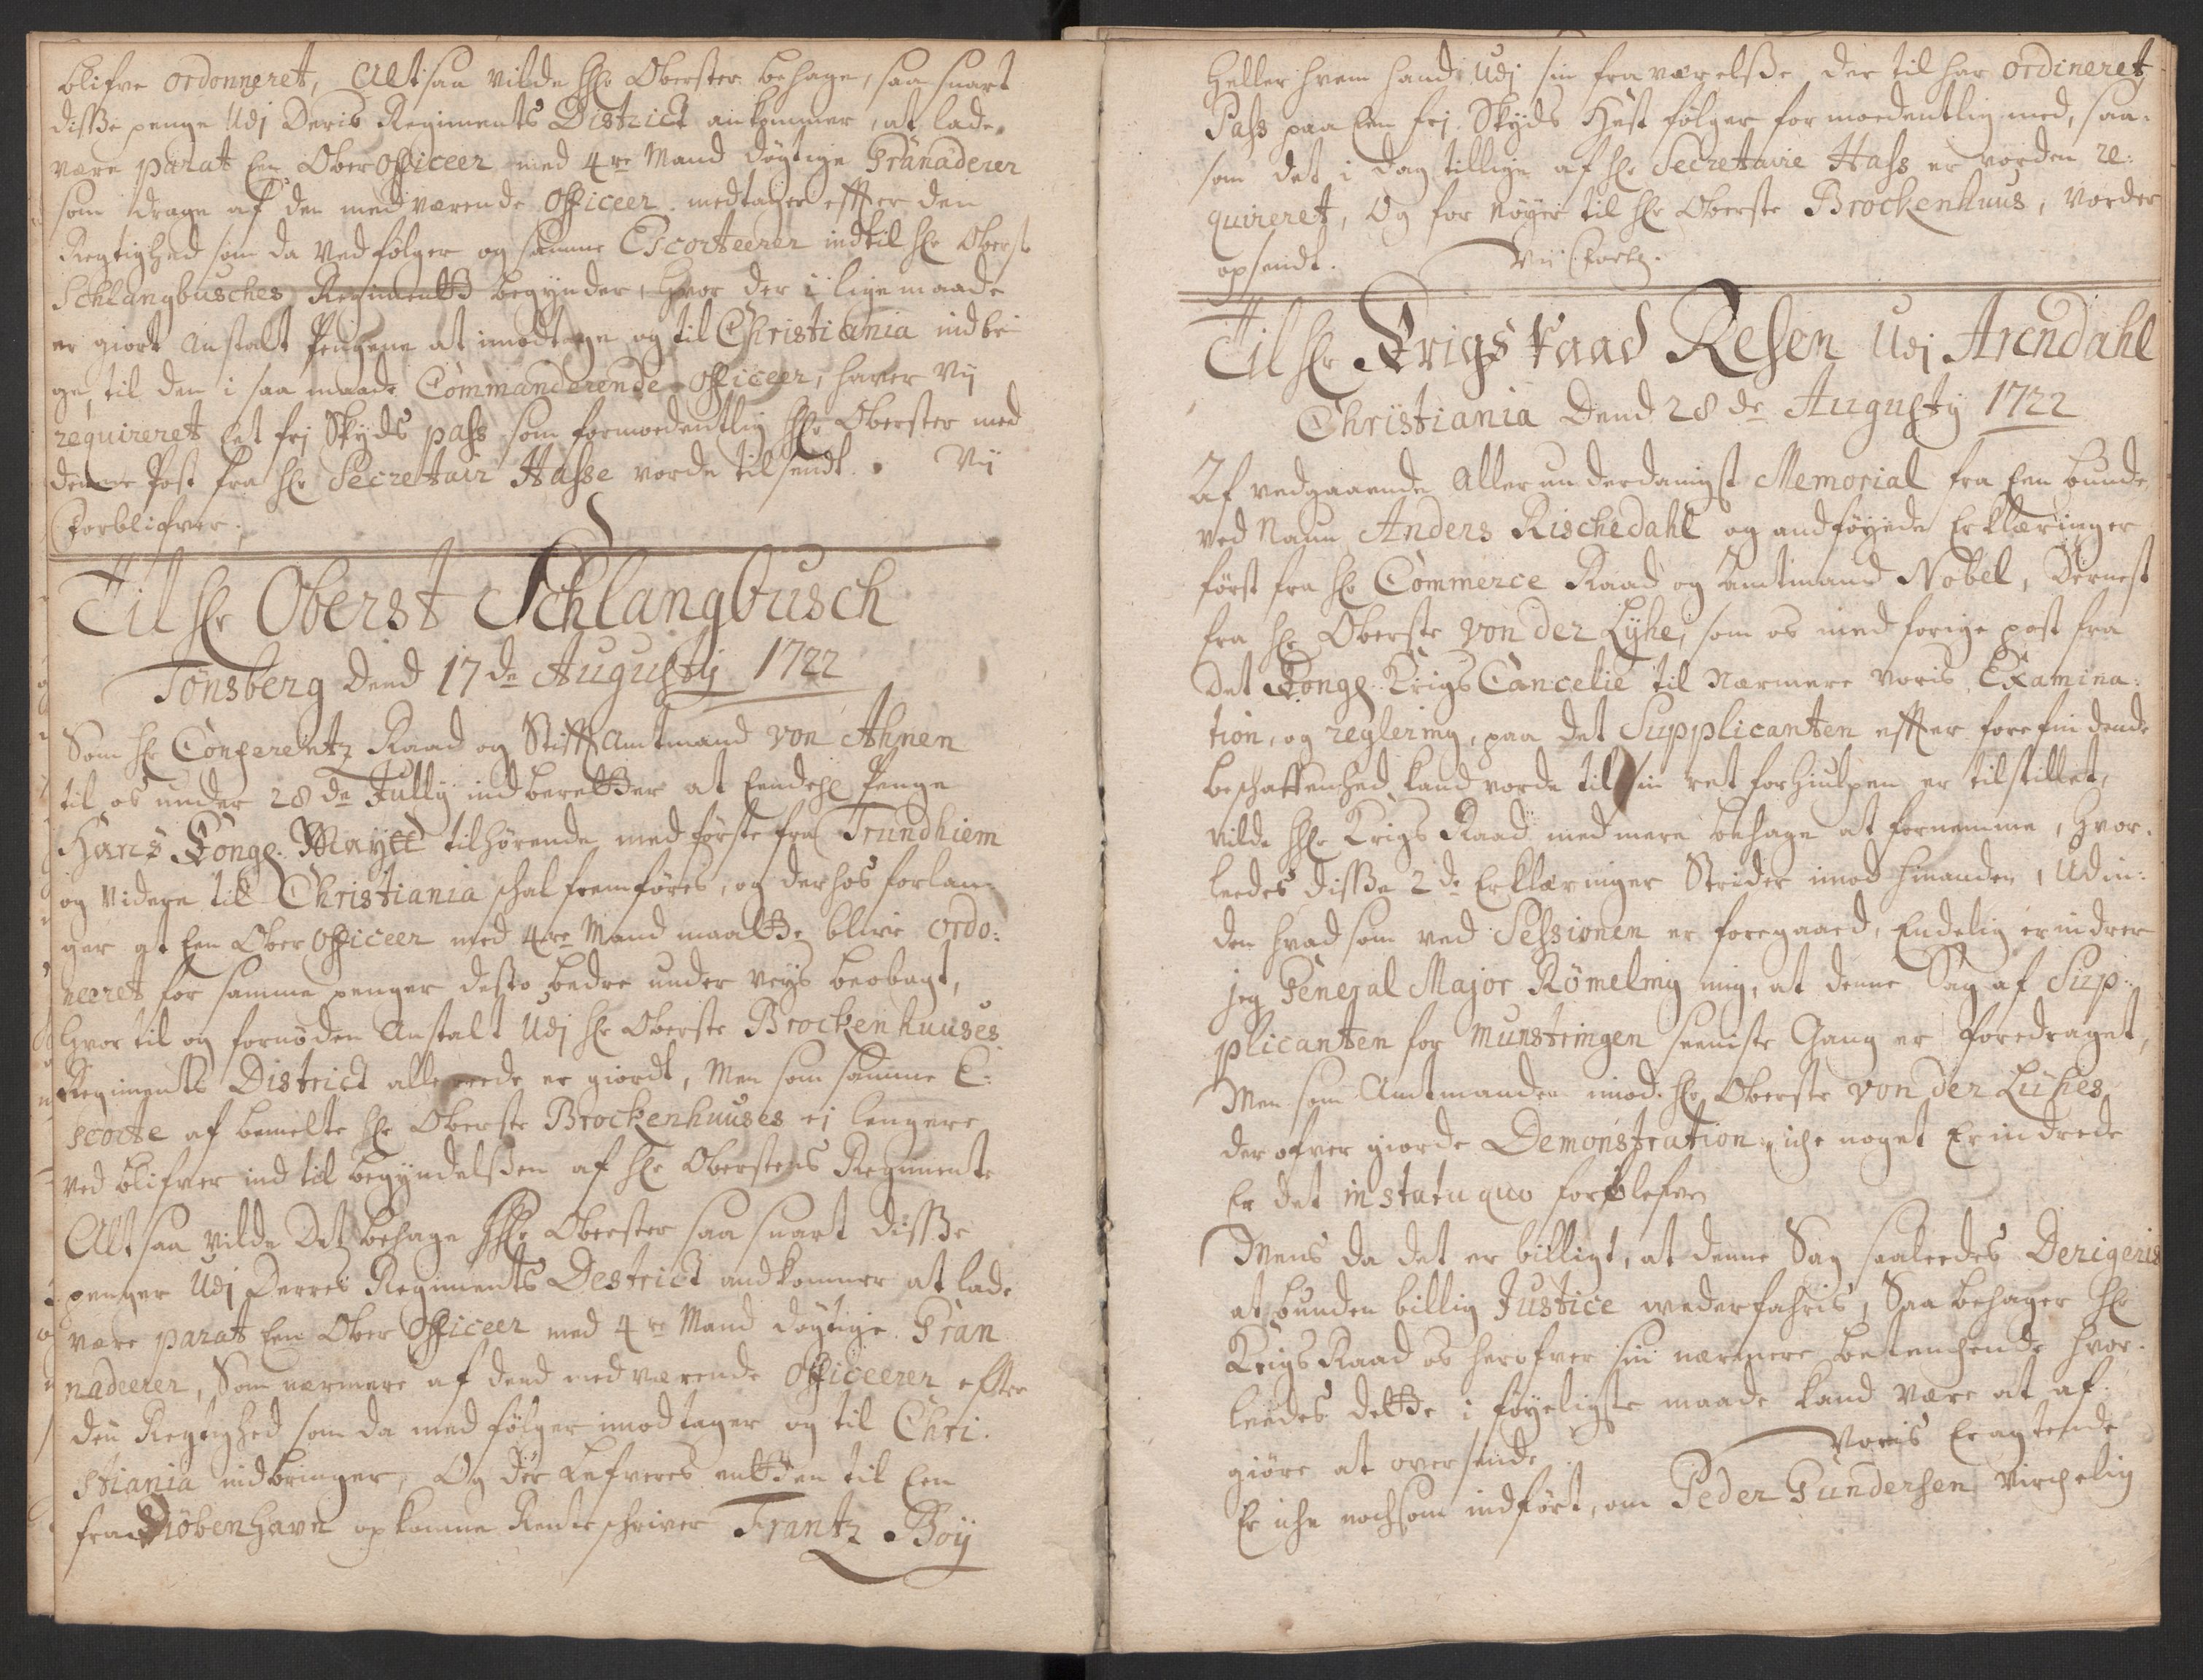 blifve ordonneret, Altsaa vilde hr Oberster behage, saa snart
disse penge Udj Deris Regiments District ankommer, at lade
være parat Een Ober Officeer med 4re Mand døgtige Granaderer
som drage af den medværende Officeer medtager effter den
Regtighed som da Ved følger og samme Escorteerer indtil hr Oberst
Schlangbusches Regimente begynder, hvor der i lige maade
er giort Anstalt Pengene at imodtage og til Christiania indbrin
ge, til den i saa maade Commanderende Officeer, haver Vij
requireret et frj Skyds pass som formodentlig hr Oberster med
denne Post fra hr Secretair Hasse vorde tilsendt. Vij
Forblifver.
Til hr Oberst Schlangbusch
Tønsberg Dend 17de Augusty 1722
Som hr Conferentz Raad og Stifft Amtmand von Ahnen
til os under 28de Jully indberetter at Eendehl Penge
Hans Kongl. Maytt tilhørende med første fra Trundhiem
og Videre til Christiania schal fremføres, og derhos forlan
ger at Een Ober Officeer med 4re Mand maatte blive ordo:
neeret for samme penger desto bedre under veys beobagt,
hvor til og fornøden Anstalt Udj hr Oberste Brockenhuuses
Regiments District allereede er giordt, Men som samme E:
scorte af bemelte hr Oberste Brockenhuuses ej lengere
ved blifver ind til begyndelssen af hr Oberstens Regimente
Altsaa vilde Det behage hr Oberster saa snart disse
penger Udj Derres Regiments Destrict andkommer at lade
være parat Een Ober Officeer med 4re Mand døgtige Gran
nadeerer, Som nærmere af dend medværende Officeerer effter
den Regtighed som da med følger imodtager og til Chri:
stiania indbringer, Og der Lefveres enten til Een
fra Kiøbenhavn opkomne Renteschriver Frantz Boÿ
Heller hvem hand Udj sin fraværelsse der til har ordineret
Pass paa Een frj Skyds Hæst følger formodentlig med, saa
som det i dag tillige af hr Secretaire Hass er vorden re:
quireret, Og for nøyes til hr Oberste Brockenhuus, vorder
opsendt. Vii Forbl.
Til hr Krigs Raad Resen Udj Arendahl
Christiania Dend 28de Augusty 1722
Af vedgaaende Allerunderdanigst Memorial fra Een bunde
ved Naun Anders Rischedahl og andføyede Erklæringer
først fra hr Commerce Raad og Amtmand Nobel, Dernest
fra hr Oberste von der Lyhe, som os med forige post fra
Det Kongl. Krigs Cancelie til Nærmere Voris Examina:
tion, og reglering, paa det Supplicanten effter forefindende
beschaffenhed kand vorde til sin ret forhiulpen er tilstillet,
vilde hr Krigs Raad med mere behage at fornemme, hvor:
leedes disse 2de Erklæringer Strider imod hinanden, Udin:
den hvad som ved Sessionen er foregaaed, Endelig erindrer
jeg General Major Rømeling mig, at denne Sag af Sup:
plicanten for Munstringen seeniste Gang er foredraget,
Men som Amtmanden imod hr Oberste von der Lühes
der ofver giorde Demonstration iche noget Erindrede
Er det in statu quo forblefven
Mens da det er billigt, at denne Sag saaleedes Derigeris
at bunden billig Justice wederfahris, Saa behager hr
Krigs Raad os herofver sin nærmere betenchende hvor:
leedes dette i føyeligste maade kand være at af:
giøre at oversende. Voris Eragtende
Er iche nochsom indført, om Peder Gundersen virchelig